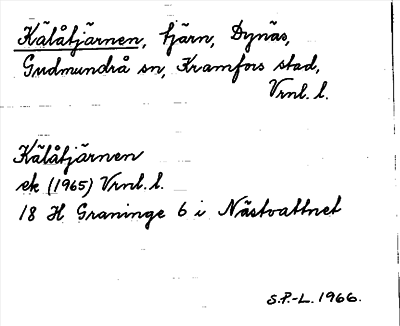 Kälåtjärnen, tjärn, Dynäs,
Gudmundrå sn, Kramfors stad,
Vrnl. l.
Kälåtjärnen
ek (1965) Vrnl. l.
18 H Graninge 6 i Nästvattnet
S.P.-L. 1966.